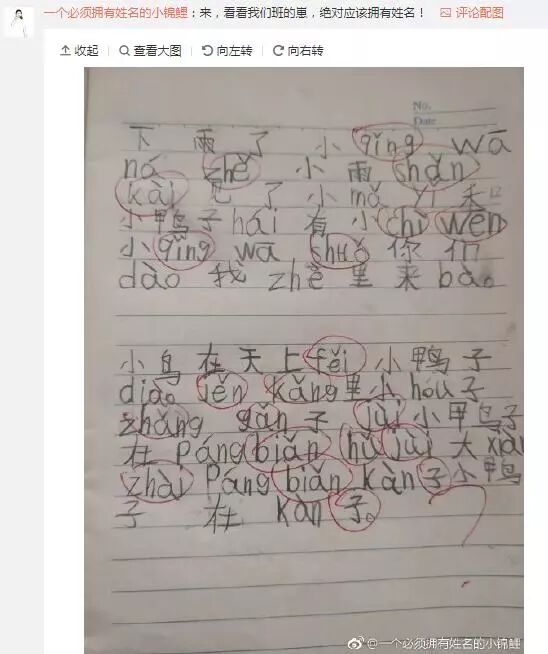 一个必须拥有姓名的小锦鲤：来，看看我们班的崽，绝对应该拥有姓名！ 评论配图
收起 查看大图 向左转 向右转
No.
Date
下 雨 了 小 qǐng wā
ná zhě 小 雨 shǎn
kāi 见 了 小 mǎ yǐ 禾
小 鸭 子 hái 有 小 chì wēn
小 qǐng wā shuō 你 们
dào 我 zhě 里 来 bào
小 鸟 在 天 上 fēi 小 鸭 子
diào jěn kǎng 里 小 hóu 子
zhǎng gǎn 子 jùi 小 甲鸟 子
在 páng biǎn hǔ jùi 大 xiàn
zhài páng biǎn kàn 子 小 鸭
子 在 kàn 子。
@一个必须拥有姓名的小锦鲤